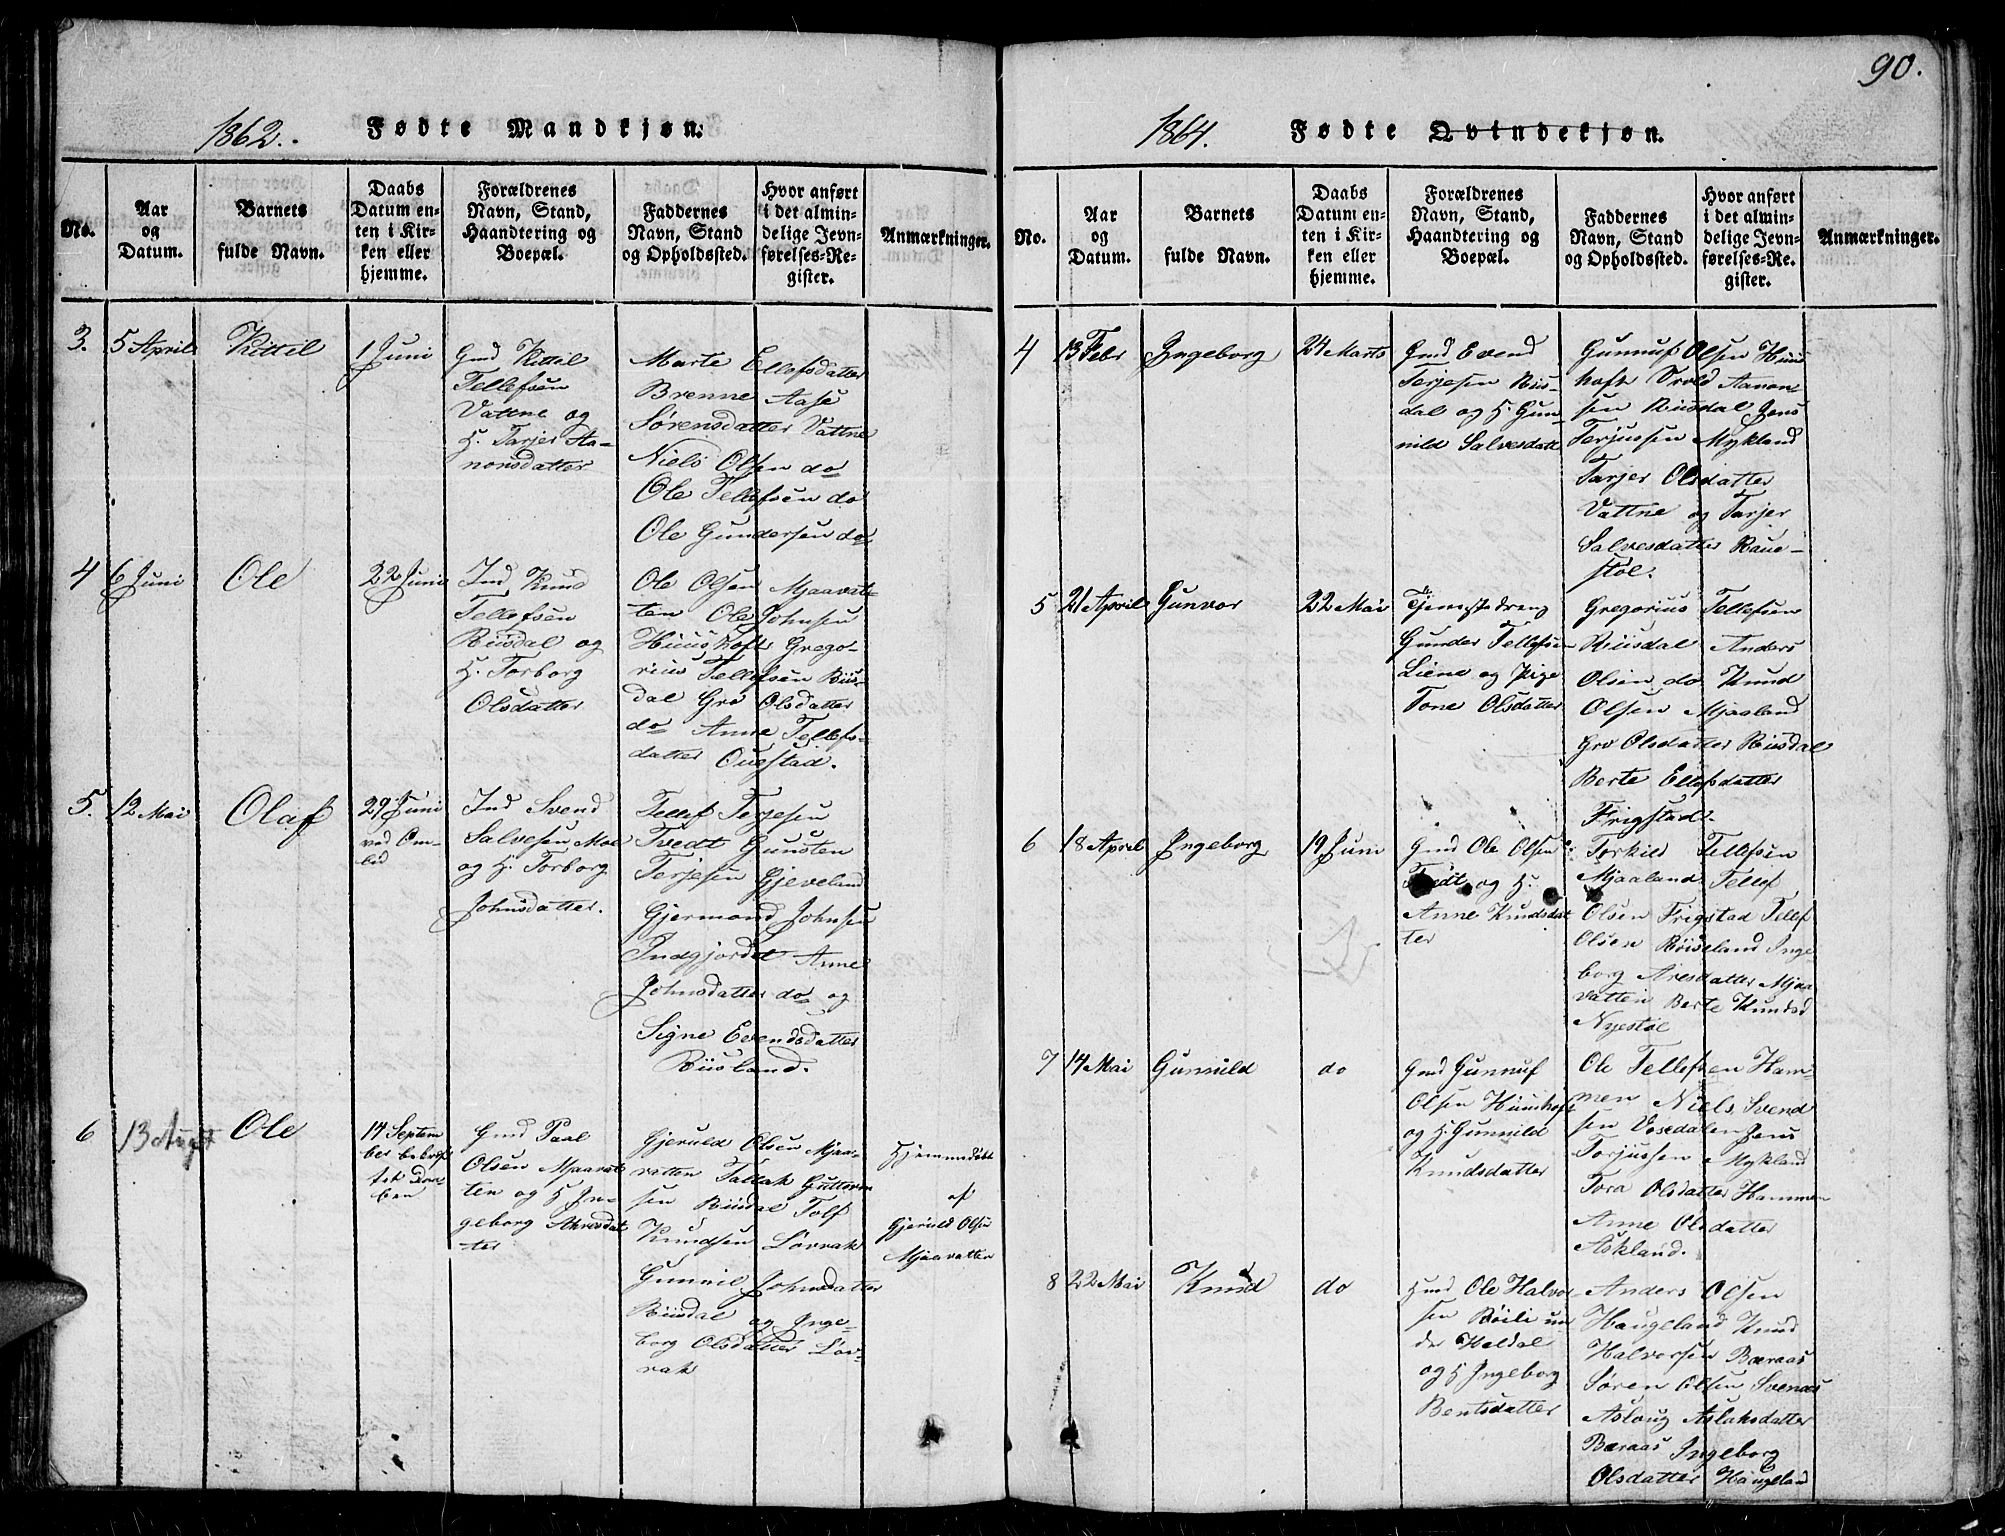 90.
1862. Fødte Mandkjøn.
No.
Aar
og
Datum.
Barnets
fulde Navn.
Daabs
Datum en-
ten i Kir-
ken eller
hjemme.
Forældrenes
Navn, Stand,
Haandtering og
Boepæl.
Faddernes
Navn, Stand
og Opholdssted.
Hvor anført
i det almin-
delige Jevn-
førelses-Re-
gister.
Anmærkninger.
3.
5 April
Kittil
1 Juni
Gmd Kittil
Tellefsen
Vattne og
H. Tarjer Aa-
nonsdatter
Marte Ellefsdatter
Brenne Aase
Sørensdatter Vattne
Niels Olsen do
Ole Tellefsen do
Ole Gundersen do
4
6 Juni
Ole
22 Juni
Ind Knud
Tellefsen
Riisdal og
H. Torborg
Olsdatter
Ole Olsen Mjaavat-
ten Ole Johnsen
Huushoft Grego-
rius Tellefsen Riis-
dal Gro Olsdatter
do Anne Tellefs-
datter Ouestad.
5.
12 Mai
Olaf
29 Juni
ved Om-
bid
Ind Svend
Salvesen Moe
og H. Torborg
Johnsdatter.
Tellef Terjesen
Tvedt Gunsten
Terjesen Gjeveland
Gjermond Johnsen
Indgjordet Anne
Johnsdatter do og
Signe Evendsdatter
Riisland.
6
13 Augst
Ole
14 Septem
ber bekræf
tet Daa
ben
Gmd Paal
Olsen Mjaavat
ten og H In-
geborg Akresdat
ter
Gjeruld Olsen Mjaa-
vatten Tallak Guttorm
sen Riisdal Tolf
Knudsen Løvrak
Gunnil Johnsdatter
Riisdal og Inge-
borg Olsdatter Løv-
rak
Hjemmedøbt
af
Gjeruld Olsen
Mjaavatten
1864. Fødte Qvindekjøn.
No.
Aar
og
Datum.
Barnets
fulde Navn.
Daabs
Datum en-
ten i Kir-
ken eller
hjemme.
Forældrenes
Navn, Stand,
Haandtering og
Boepæl.
Faddernes
Navn, Stand
og Opholdssted.
Hvor anført
i det almin-
delige Jevn-
førelses-Re-
gister.
Anmærkninger.
4
13 Febr
Ingeborg
24 Marts
Gmd Evend
Terjesen Riis-
dal og H. Gun
nild Salvesdatt
Gunnuf Olsen Huus
hoft Orold Aanon
sen Riisdal Jens
Terjussen Mykland
Tarjer Olsdatter
Vattne og Tarjer
Salvesdatter Raue-
støl.
5
21 April
Gunvor
22 Mai
Tjenstedreng
Gunder Tellefsen
Liene og Pige
Tone Olsdatter
Gregorius Tellefsen
Riisdal Anders
Olsen do Knud
Olsen Mjaaland
Gro Olsdatter Riisdal
Berte Ellefsdatter
Frigstad.
6
18 April
Ingeborg
19 Juni
Gmd Ole Olsen
Tvedt og H.
Anne Knudsdat
ter
Torkild Tellefsen
Mjaaland Tellef
Olsen Frigstad Tellef
Olsen Røiseland Inge
borg Aresdatter Mjaa
vatten Berte Knudsd
Nyestøl
7
14 Mai
Gunnild
do
Gmd Gunnuf
Olsen Huushoft
og H. Gunnild
Knudsdatter
Ole Tellefsen Ham-
men Niels Svend
sen Vosedalen Jens
Torjussen Mykland
Tora Olsdatter Hammen
Anne Olsdatter
Askland.
8
22 Mai
Knud
do
Hmd Ole Halvor
sen Røili un
der Heldal
og H Ingeborg
Bentsdatter
Anders Olsen
Haugeland Knud
Halvorsen Bæraas
Søren Olsen Svenaas
Asloug Aslaksdatter
Bæraas Ingeborg
Olsdatter Haugeland